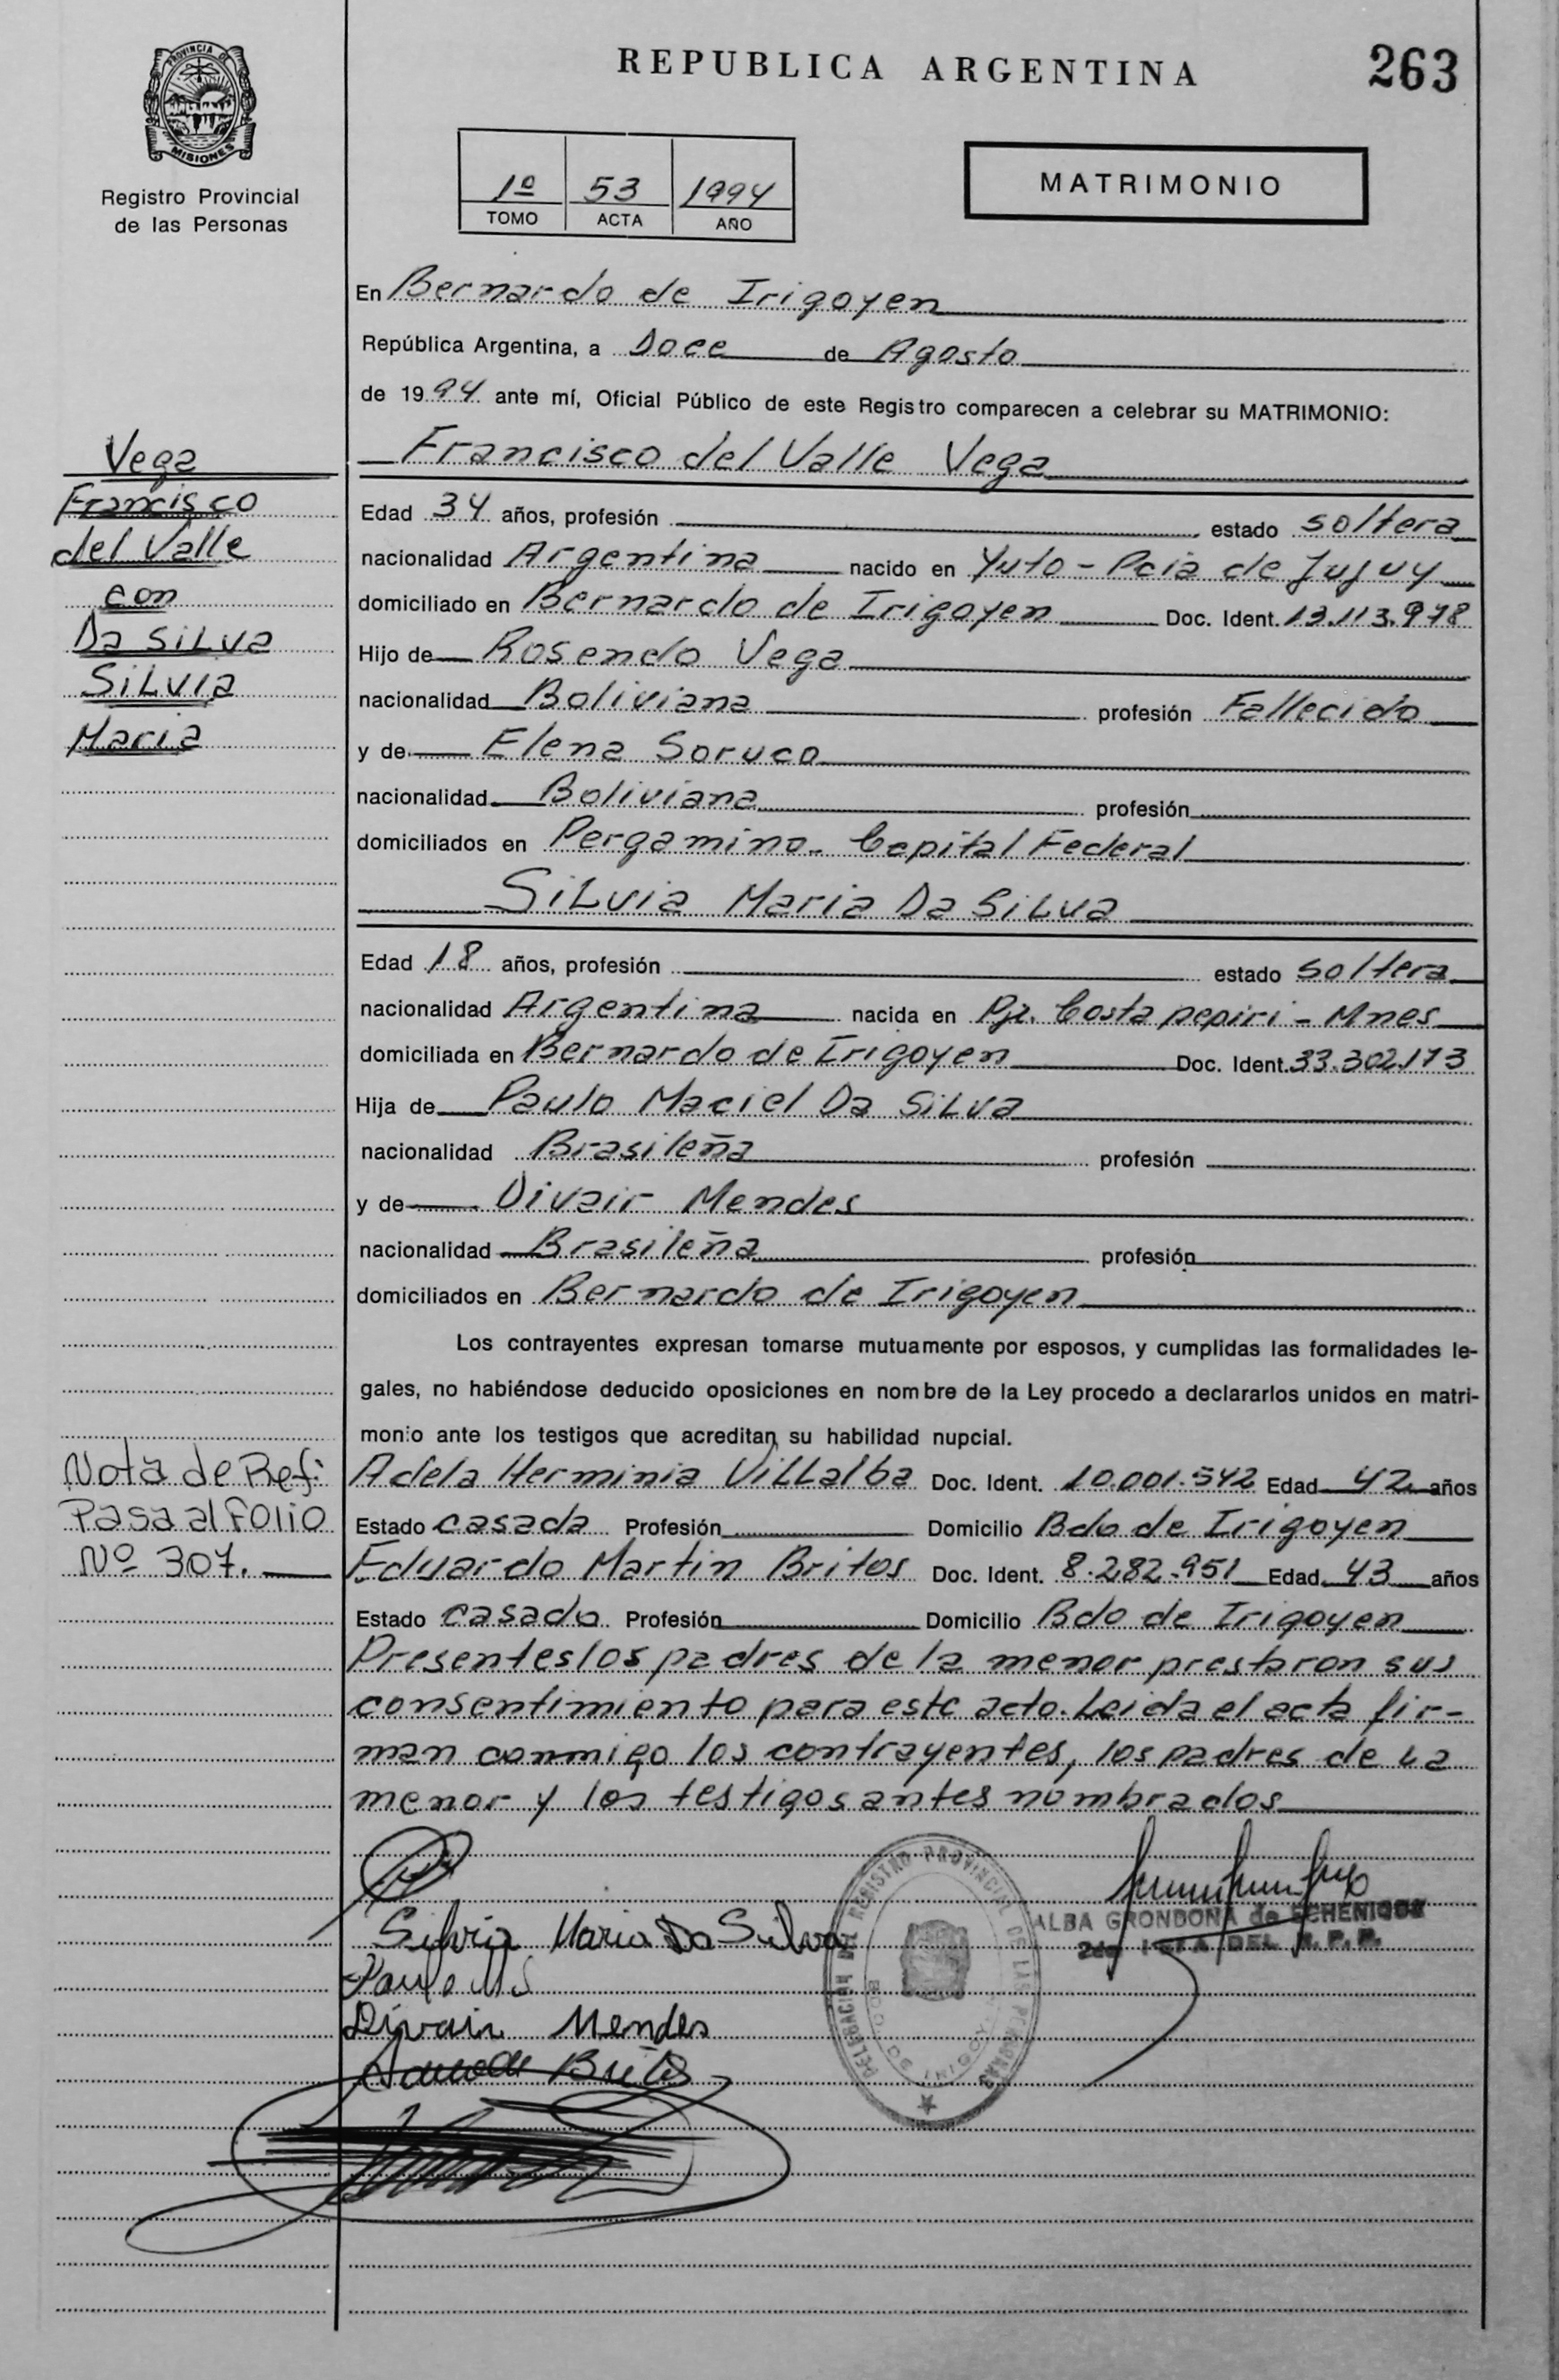 REPUBLICA ARGENTINA
263
PROVINCIA DE
MISIONES
Registro Provincial
de las Personas
1º 53 1994
TOMO ACTA AÑO
MATRIMONIO
En Bernardo de Irigoyen
República Argentina, a Doce de Agosto
de 1994 ante mí, Oficial Público de este Registro comparecen a celebrar su MATRIMONIO:
Francisco del Valle Vega
Vega
Francisco
del Valle
con
Da SiLva
SiLvia
Maria
Edad 34 años, profesión estado soltera
nacionalidad Argentina nacido en Yuto - Pcia de Jujuy
domiciliado en Bernardo de Irigoyen Doc. Ident. 13.113.978
Hijo de Rosendo Vega
nacionalidad Boliviana profesión Fallecido
y de Elena Soruco
nacionalidad Boliviana profesión
domiciliados en Pergamino - Capital Federal
SiLvia Maria Da SiLva
Edad 18 años, profesión estado soltera
nacionalidad Argentina nacida en Pje. Costa pepiri - Mnes
domiciliada en Bernardo de Irigoyen Doc. Ident. 33.302.173
Hija de Paulo Maciel Da SiLva
nacionalidad Brasileña profesión
y de Divair Mendes
nacionalidad Brasileña profesión
domiciliados en Bernardo de Irigoyen
Los contrayentes expresan tomarse mutuamente por esposos, y cumplidas las formalidades le-
gales, no habiéndose deducido oposiciones en nombre de la Ley procedo a declararlos unidos en matri-
monio ante los testigos que acreditan su habilidad nupcial.
Nota de Ref:
Pasa al Folio
Nº 307.
Adela Herminia ViLLalba Doc. Ident. 10.001.542 Edad 42 años
Estado casada Profesión Domicilio Bdo de Irigoyen
Eduardo Martin Britos Doc. Ident. 8.282.951 Edad 43 años
Estado casado Profesión Domicilio Bdo de Irigoyen
Presentes los padres de la menor prestaron sus
consentimiento para este acto. Leida el acta fir-
man conmigo los contrayentes, los padres de La
menor y los testigos antes nombrados
Silvia Maria Da Silva
Paulo M S
Divair Mendes
Britos
DELEGACION DEL REGISTRO PROVINCIAL DE LAS PERSONAS
BDO DE IRIGOYEN
ALBA GRONDONA de ECHENIQUE
2da JEFA DEL R. P. P.